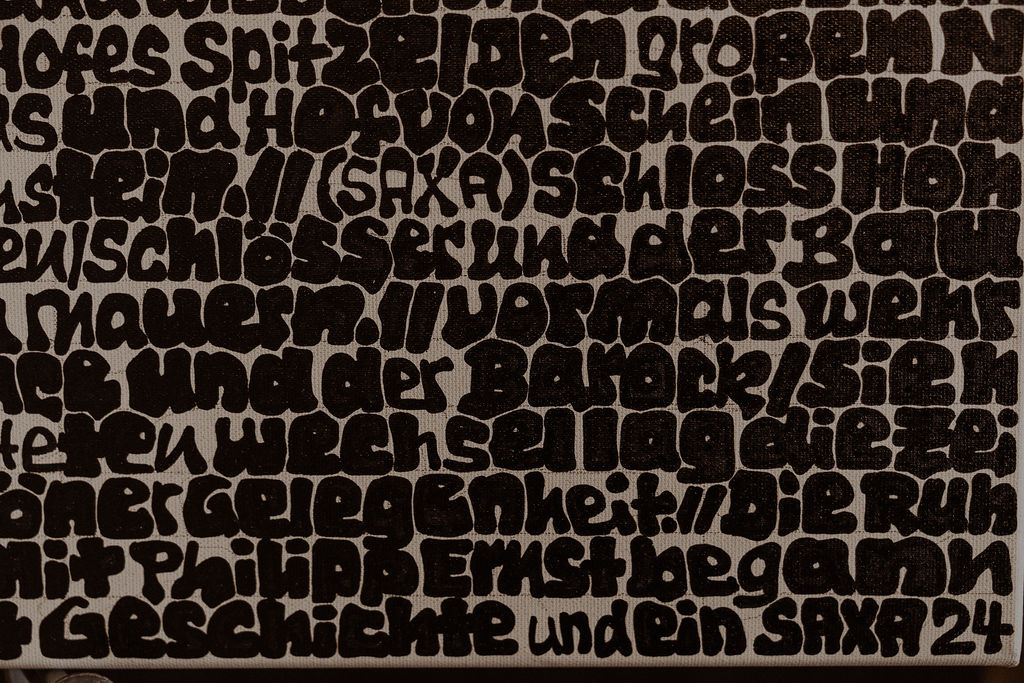 Hofes Spitzel Den großen N
s und Hof von Schein und
nstein. // (SAXA) Schloss Hoh
en/schlösser und der Bau
Mauern. // vormals wehr
und der Barock / Sieh
teten wechsel lag die zei
öner Gelegenheit. // Die Ruh
mit Philipp Ernst begann
Geschichte und ein SAXA 24